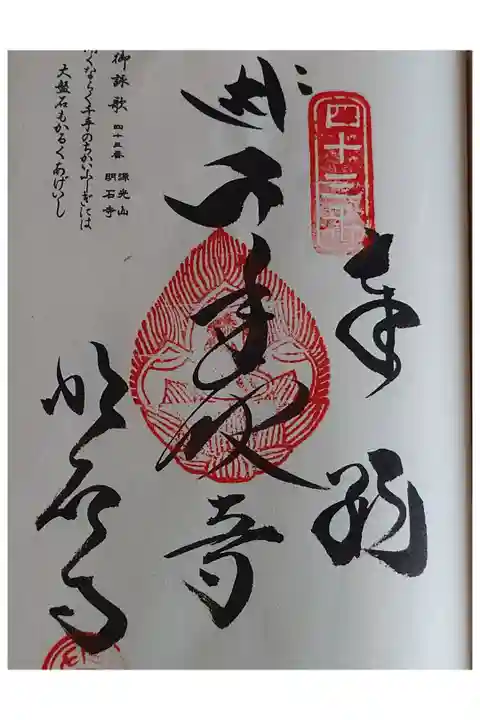 四十三番
奉納
千手観音
明石寺
御詠歌 四十三番 源光山 明石寺
聞くならく千手のちかいふしぎには
大盤石もかるくあげいし